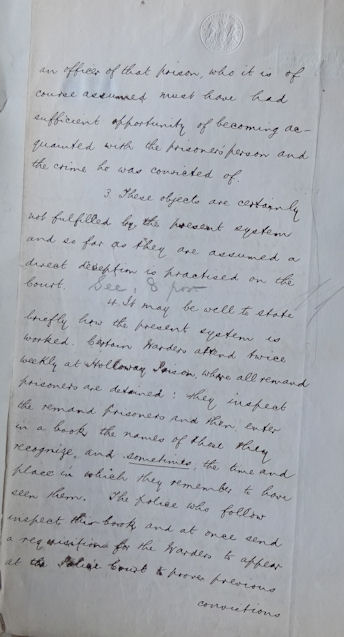 an officer of that prison, who it is of
course assumed must have had
sufficient opportunity of becoming ac-
quainted with the prisoners' person and
the crime he was convicted of.
3. These objects are certainly
not fulfilled by the present system
and so far as they are assumed a
direct deception is practised on the
Court. See, 8 
4. It may be well to state
briefly how the present system is
worked. Certain Warders attend twice
weekly at Holloway Prison, where all remand
prisoners are detained: they inspect
the remand prisoners and then enter
in a book the names of these they
recognize, and sometimes, the time and
place in which they remember to have
seen them. The police who follow
inspect this book and at once send
a requisitions for the Warders to appear
at the Police Court to prove previous
convictions